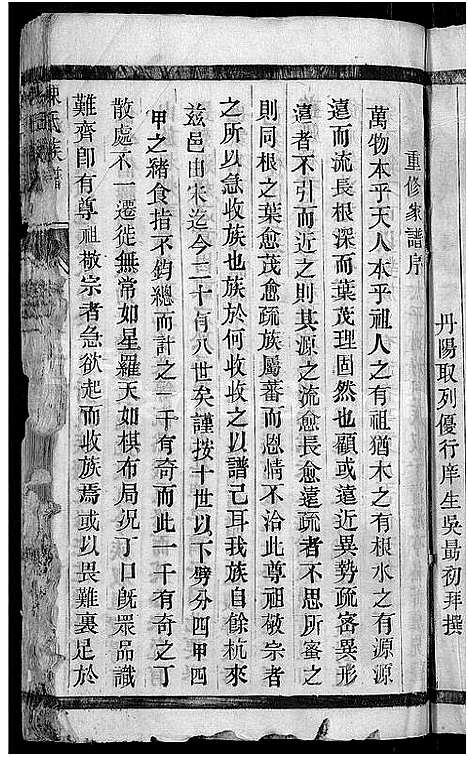 丹陽取列優行庠生吳最初拜撰
重修家譜序
萬物本乎天人本乎祖人之有祖猶木之有根水之有源源
遠而流長根深而葉茂理固然也顧或遠近異勢疏密異形
遠者不引而近之則其源之流愈長愈遠疏者不思所蜜之
則同根之葉愈茂愈疏族屬蕃而恩情不洽此尊祖敬宗者
之所以急收族也族於何收收之以譜己耳我族自餘杭來
茲邑由宋迄今二十有八世矣謹按十世以下劈分四甲四
甲之緒食指不鈞總而計之一千有奇而此一千有奇之丁
散處不一遷徙無常如星羅天如棋布局況丁口旣眾品識
難齊卽有尊祖敬宗者急欲起而收族焉或以畏難裹足於
陳氏族譜